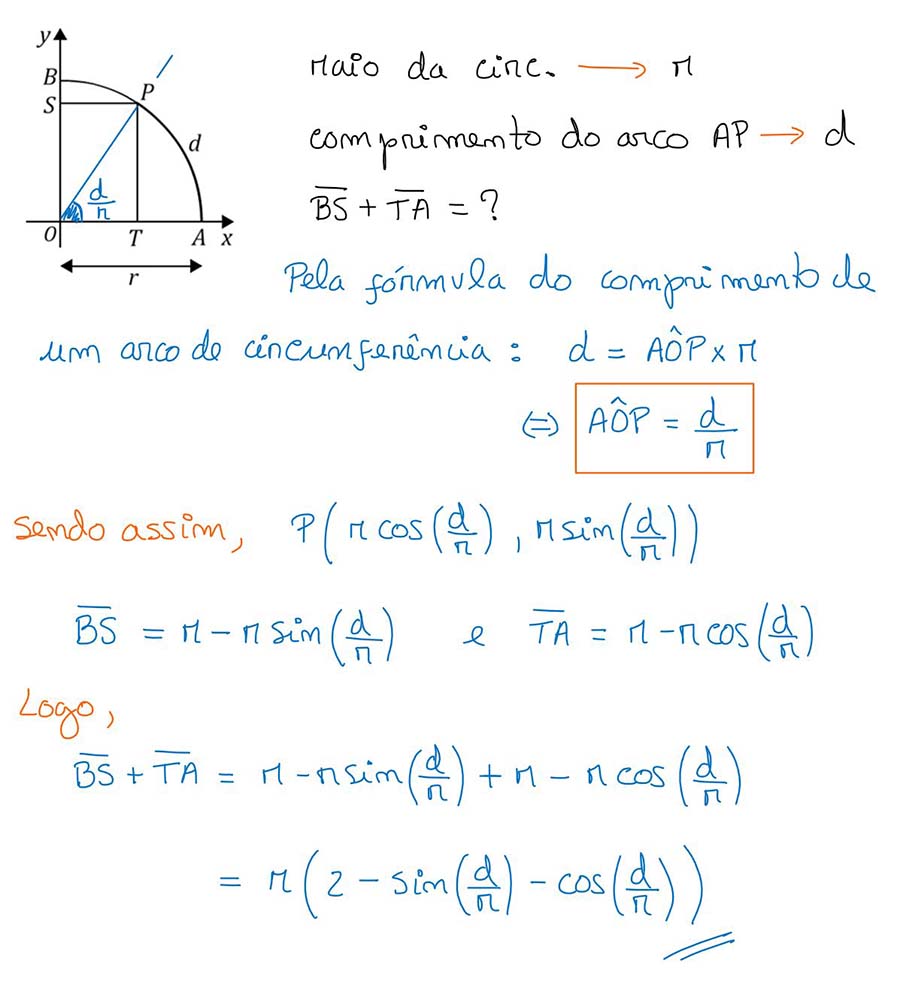 y
B
S
P
d
d/r
O
T
A
x
r
raio da circ. → r
comprimento do arco AP → d
B̅S̅ + T̅A̅ = ?
Pela fórmula do comprimento de
um arco de circunferência : d = AÔP × r
⇔ AÔP = d/r
Sendo assim, P(r cos(d/r), r sin(d/r))
B̅S̅ = r - r sin(d/r) e T̅A̅ = r - r cos(d/r)
Logo,
B̅S̅ + T̅A̅ = r - r sin(d/r) + r - r cos(d/r)
= r(2 - sin(d/r) - cos(d/r))